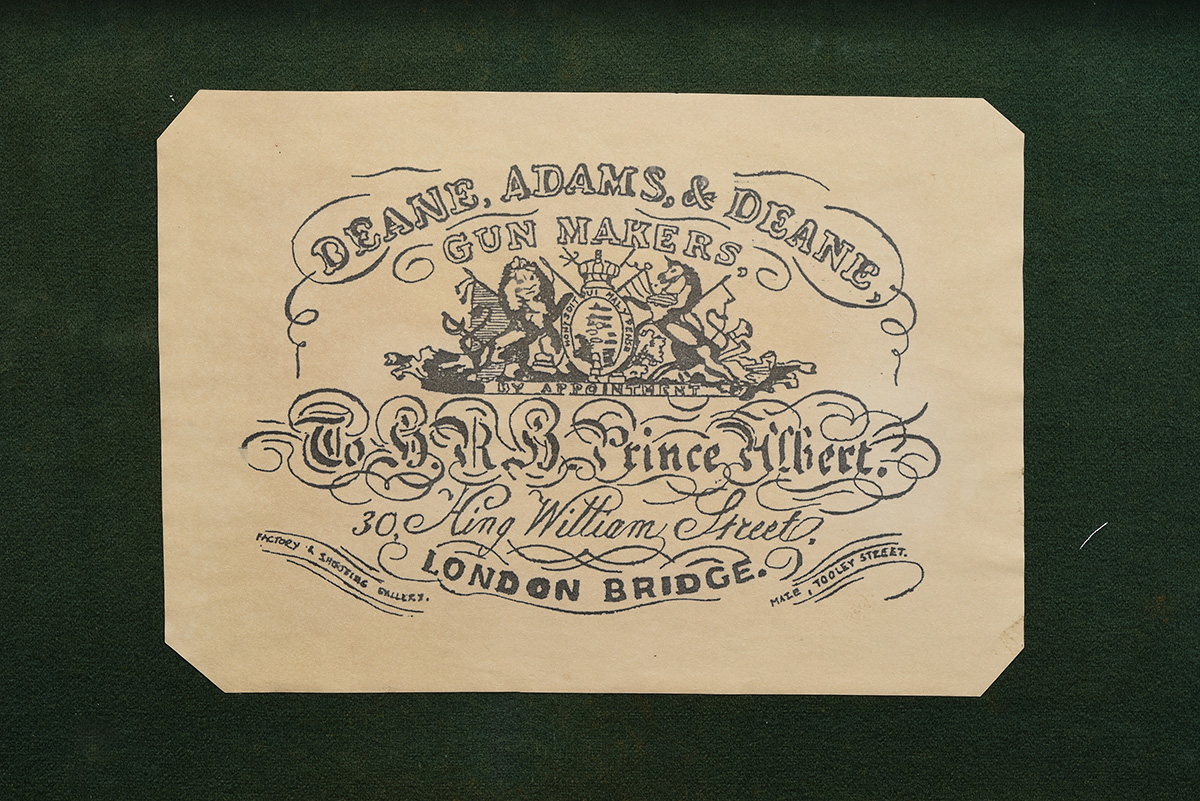 DEANE, ADAMS, & DEANE,
GUN MAKERS,
HONI SOIT QUI MAL Y PENSE
BY APPOINTMENT
To H.R.H. Prince Albert.
30, King William Street,
LONDON BRIDGE.
FACTORY & SHOOTING GALLERY.
MAZE, TOOLEY STREET.